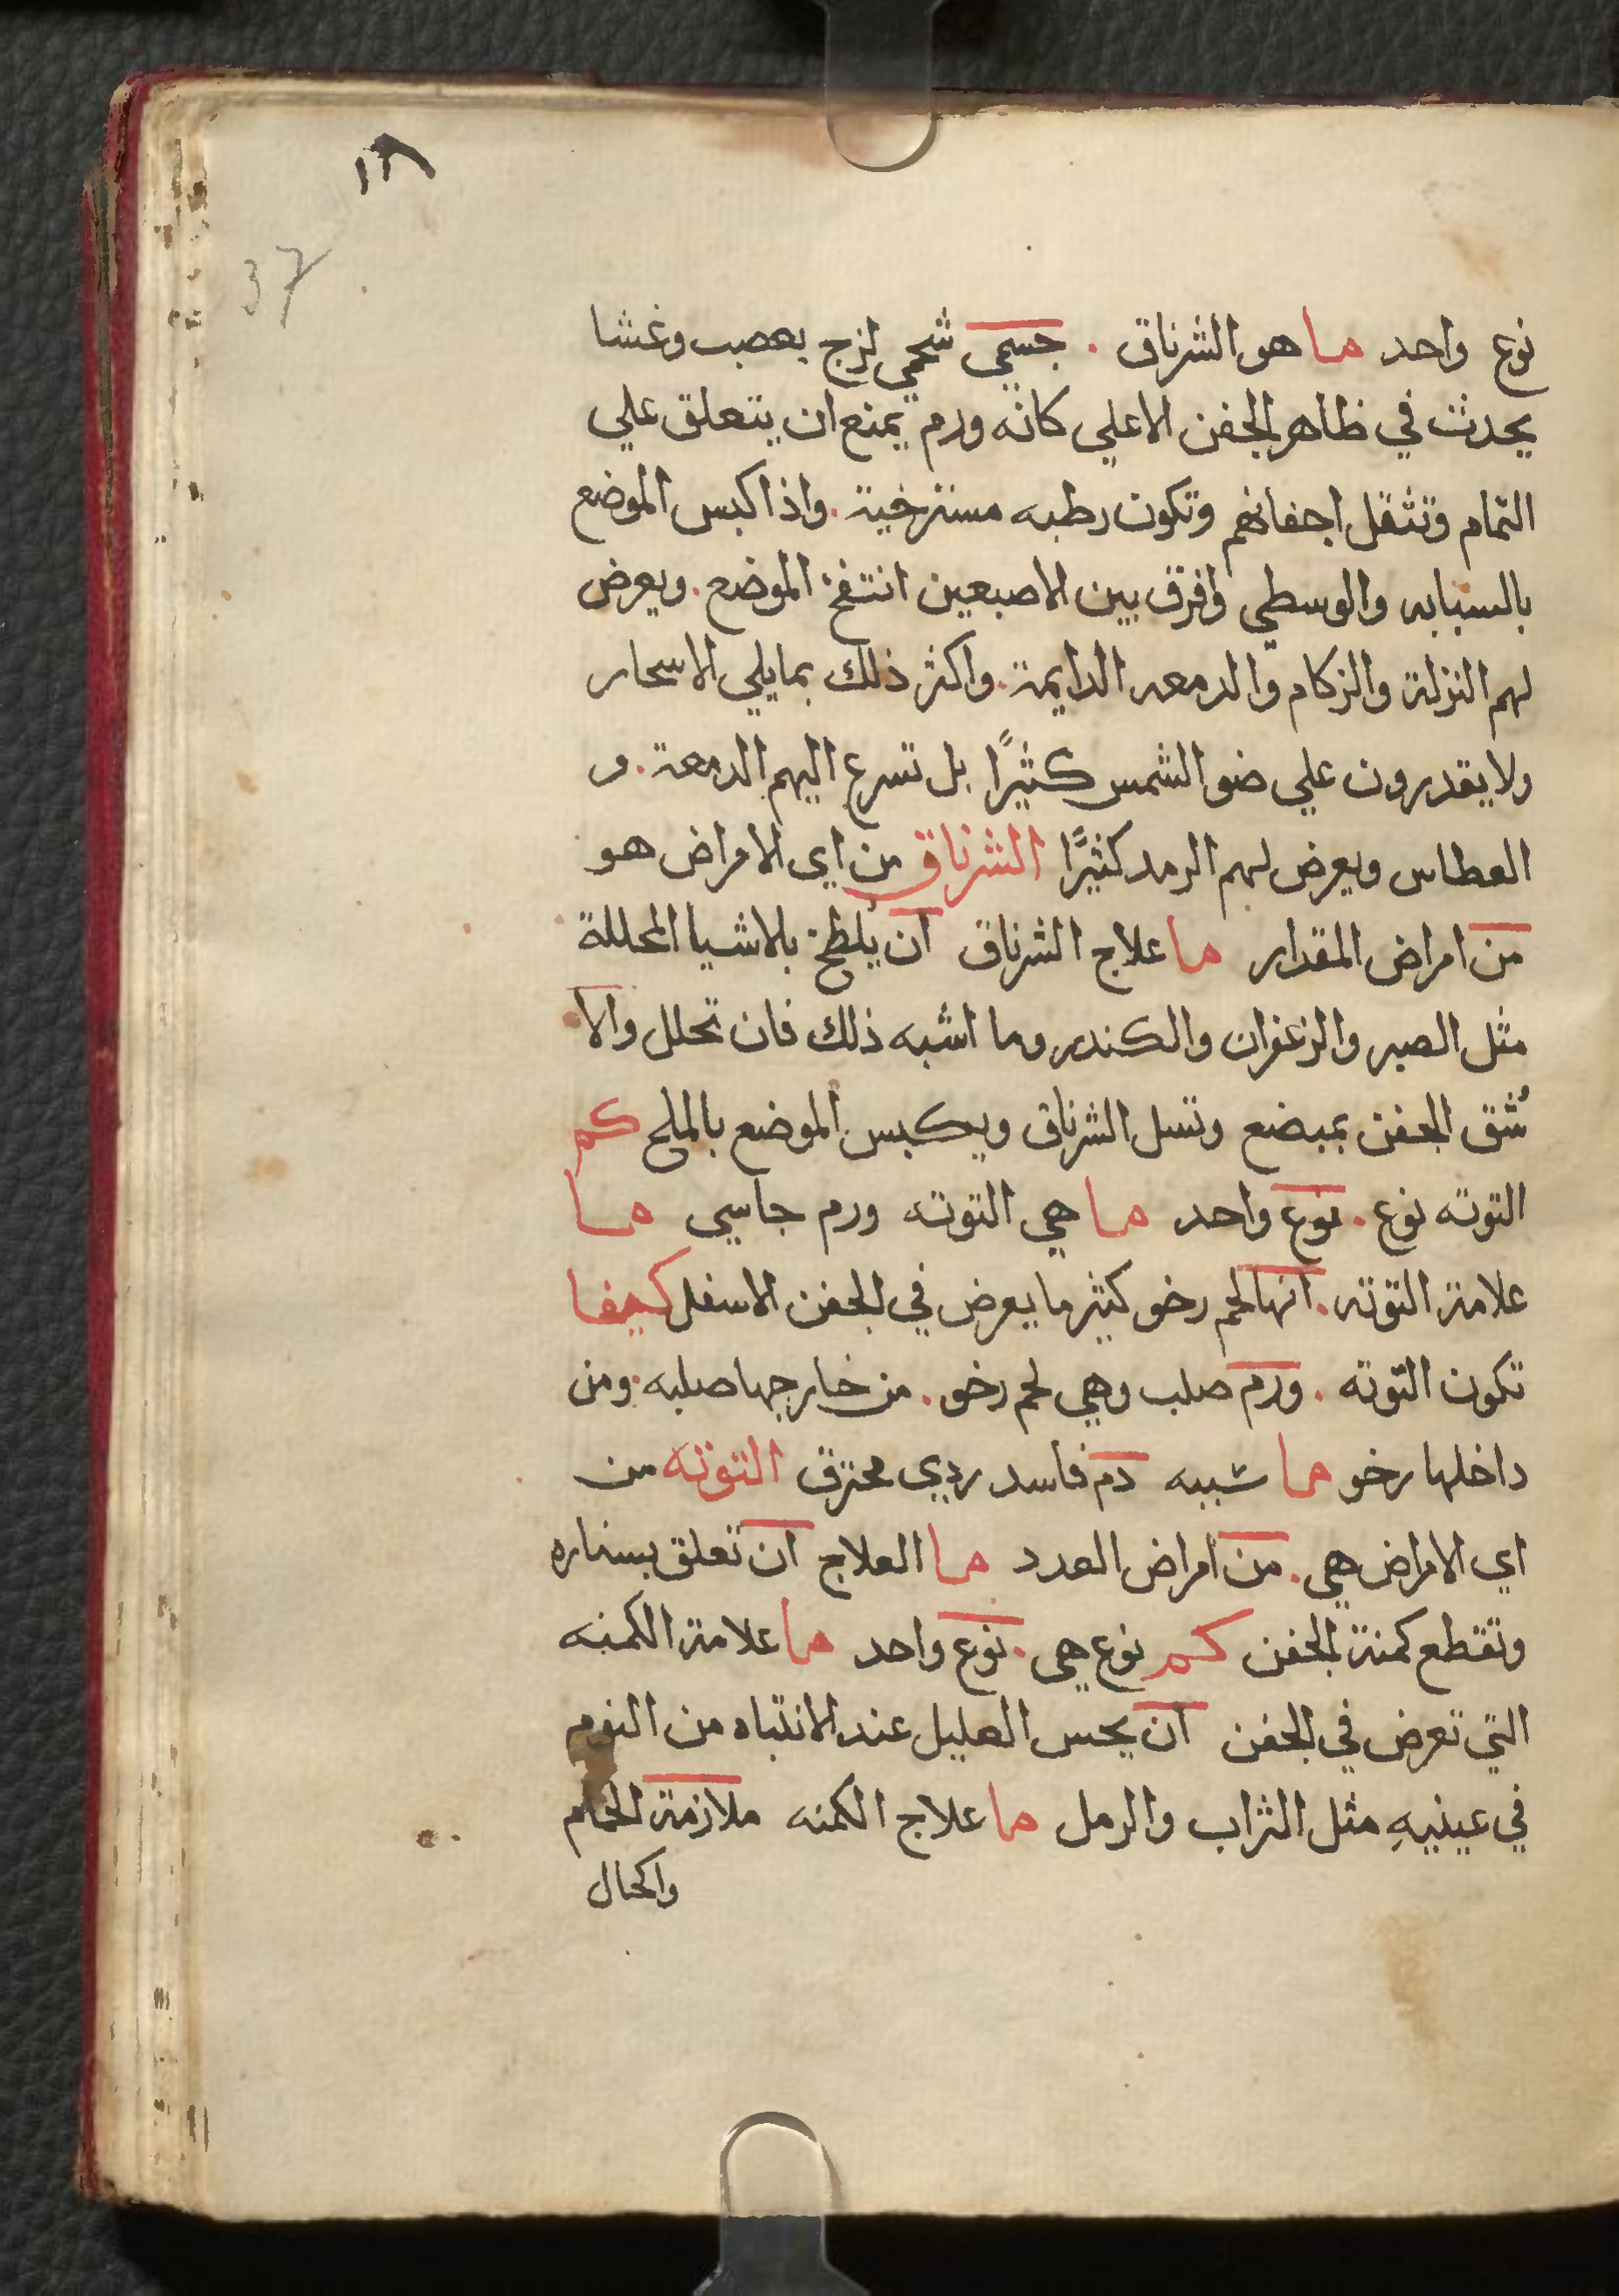 ١٨
37
نوع واحد ما هو الشرناق . جسمي شحمي لزج بعصب وغشا
يحدث في ظاهر الجفن الاعلي كانه ورم يمنع ان يتعلق علي
التمام وتثقل اجفانهم وتكون رطبه مسترخية . واذا كبس الموضع
بالسبابه والوسطي وافرق بين الاصبعين انتفخ الموضع . ويعرض
لهم النزلة والزكام والدمعه الدايمة . واكثر ذلك بمايلي الاسحار
ولا يقدرون علي ضو الشمس كثيرًا بل تسرع اليهم الدمعة . و
العطاس ويعرض لهم الرمد كثيرًا الشرناق من اي الامراض هو
من امراض المقدار ما علاج الشرناق ان يلطخ بلاشيا المحللة
مثل الصبر والزعفران والكندر وما اشبه ذلك فان تحلل والا
شُق الجفن بمبضع وتسل الشرناق ويكبس الموضع بالملح كم
التوته نوع . نوع واحد ما هي التوته ورم جاسي ما
علامة التوته . انها لحم رخو كثير ما يعرض في الجفن الاسفل كيفا
تكون التوته . ورم صلب وهي لحم رخو . من خارجها صلبه . ومن
داخلها رخو ما سببه دم فاسد ردي محترق التوته من
اي الامراض هي . من امراض العدد ما العلاج ان تعلق بسناره
وتقطع كمنة الجفن كم نوع هي . نوع واحد ما علامة الكمنه
التي تعرض في الجفن ان يحس العليل عند الانتباه من النوم
في عينيهِ مثل التراب والرمل ما علاج الكمنه ملازمة الحمام
واكحال